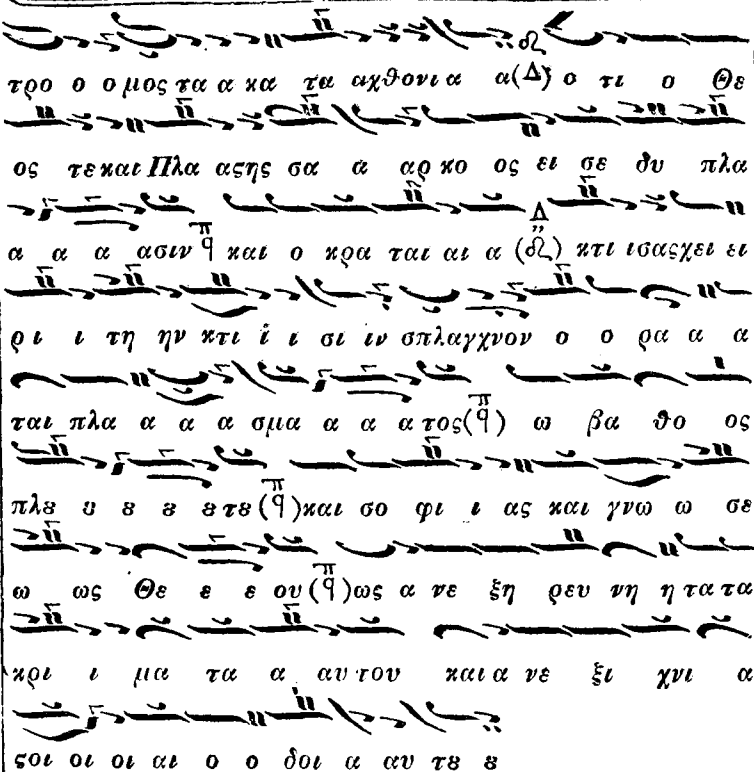 τρο ο ο μος τα α κα τα αχθονι α α (Δ) ο τι ο Θε
ος τε και Πλα αϛης σα α αρ κο ος ει σε δυ πλα
α α α ασιν π ϥ και ο κρα ται αι α (Δ) κτι ισαςχει ει
ρι ι τη ην κτι ί ι σι ιν σπλαγχνον ο ο ρα α α
ται πλα α α α σμα α α α τος (π ϥ) ω βα θο ος
πλȣ ȣ ȣ ȣ ȣ τȣ (π ϥ) και σο φι ι ας και γνω ω σε
ω ως Θε ε ε ου (π ϥ) ως α νε ξη ρευ νη η τα τα
κρι ι μα τα α αυ του και α νε ξι χνι α
ϛοι οι οι αι ο ο δοι α αυ τȣ ȣ